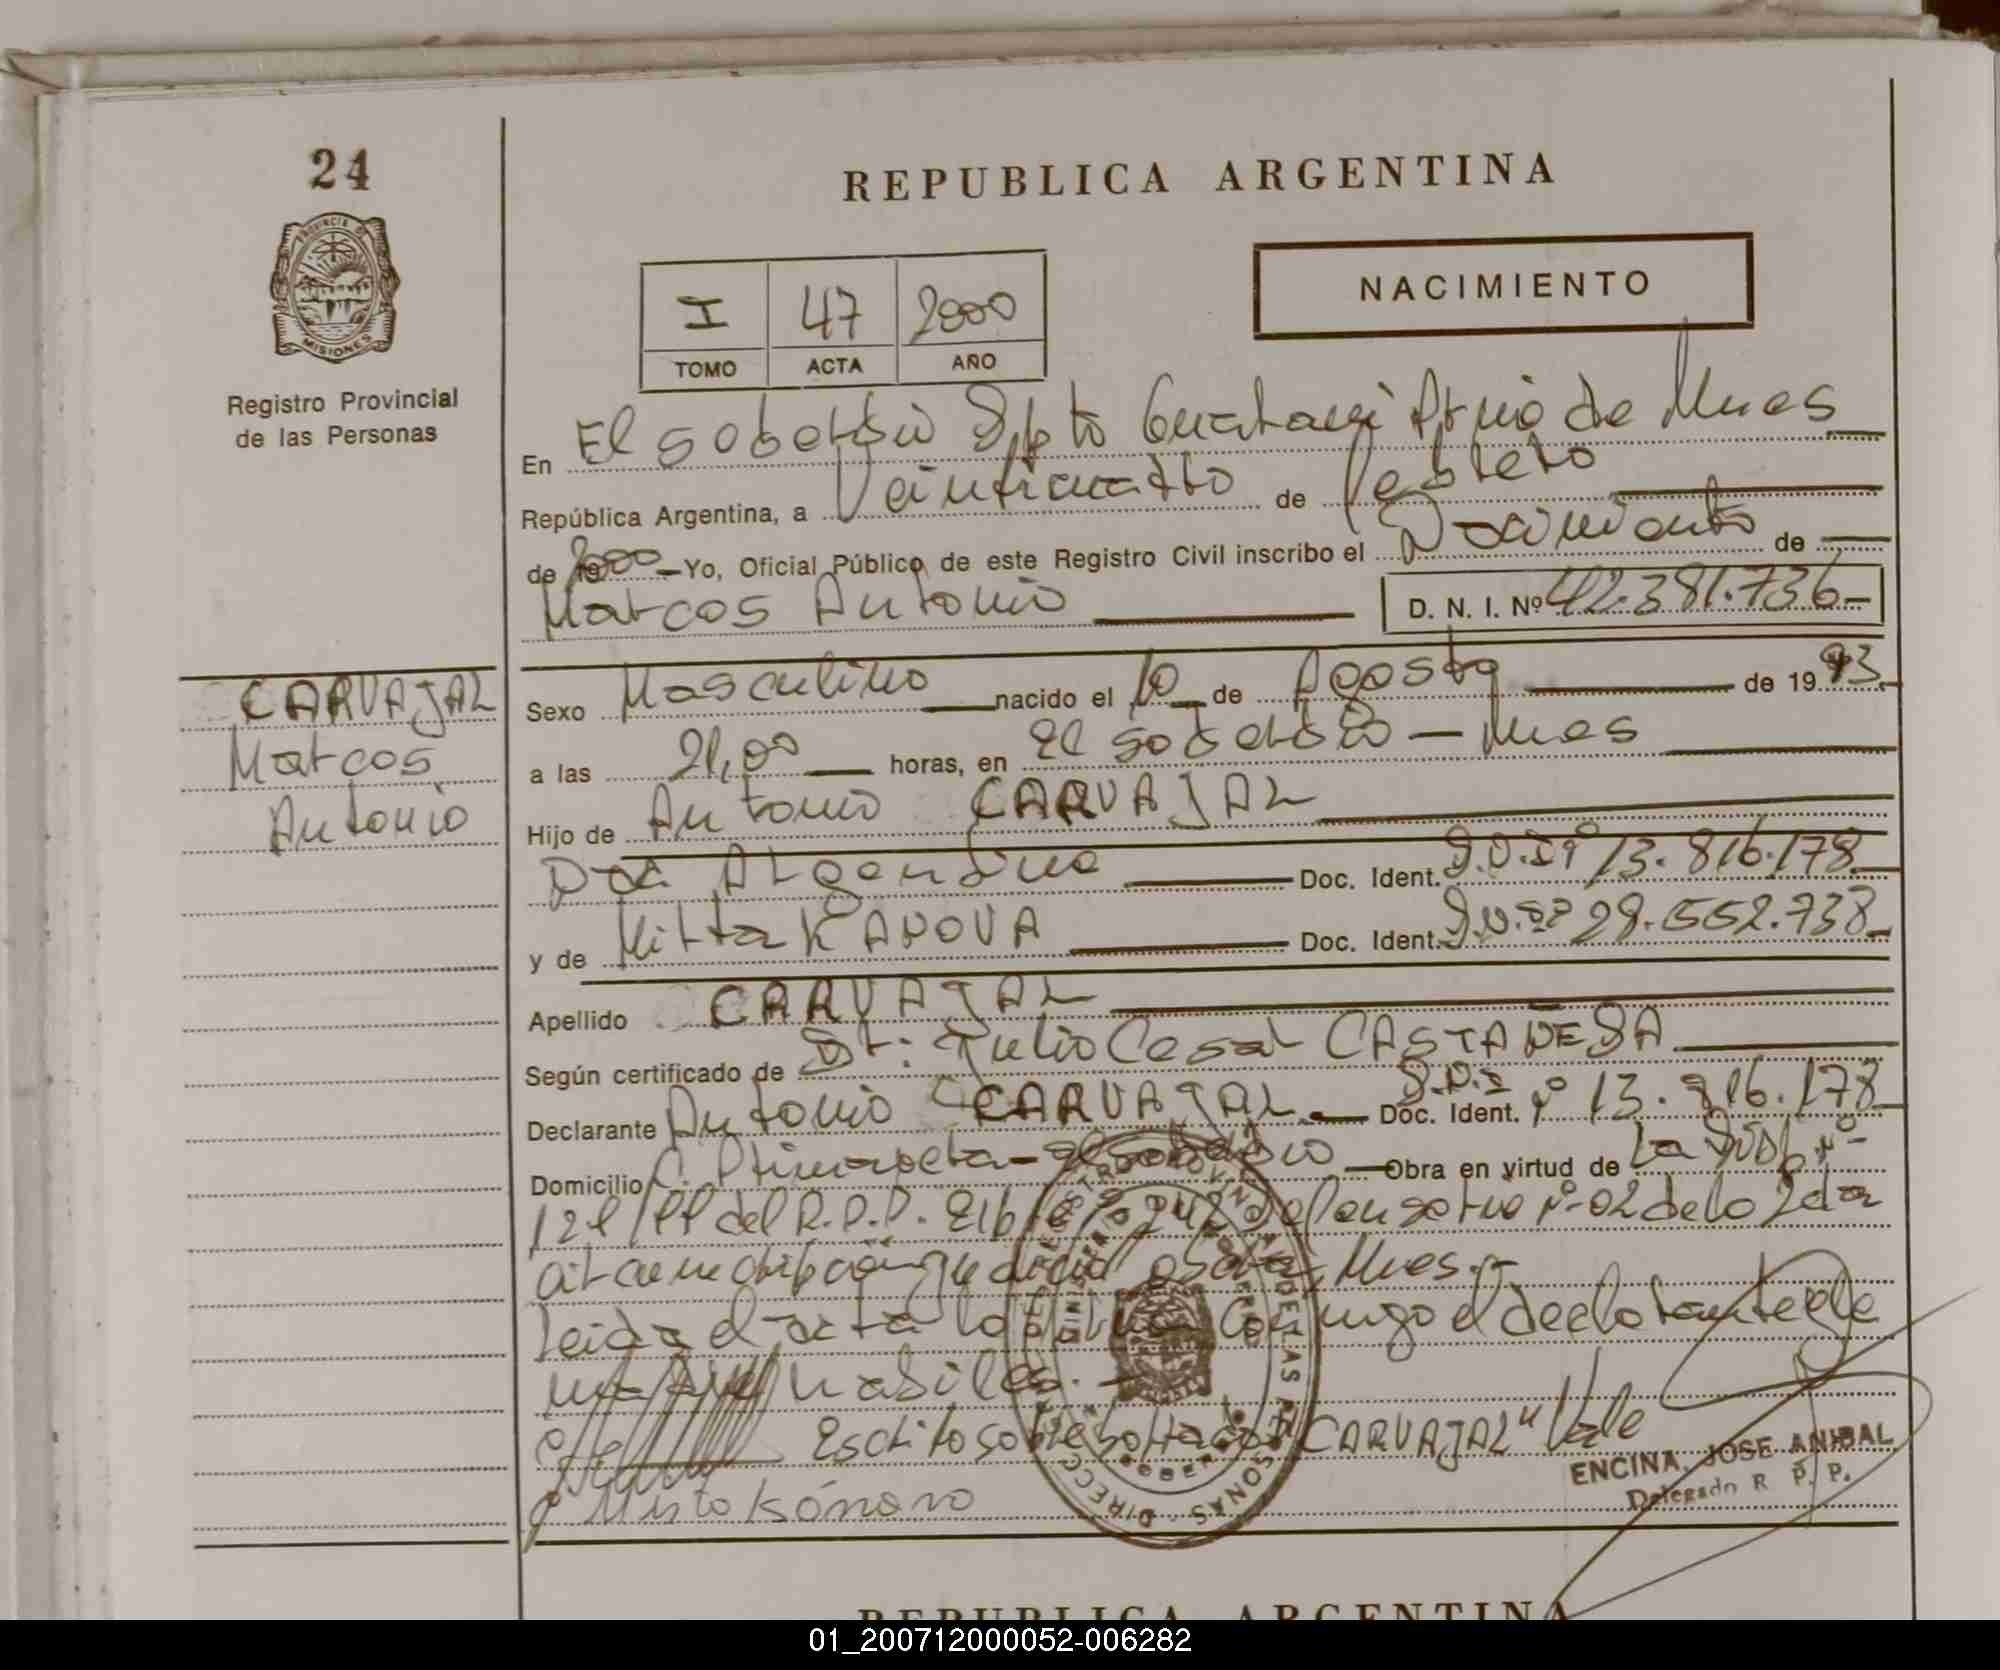 24
REPUBLICA ARGENTINA
NACIMIENTO
I 47 2000
TOMO ACTA AÑO
PROVINCIA DE
MISIONES
Registro Provincial
de las Personas
En El soberbio Dpto Guarani Pcia de Mnes
República Argentina, a Veinticuatro de Febrero
de 2000 Yo, Oficial Público de este Registro Civil inscribo el Nacimiento de
Marcos Antonio D. N. I. Nº 42.381.736
CARVAJAL
Marcos
Antonio
Sexo Masculino nacido el 10 de Agosto de 1993
a las 21,00 horas, en El soberbio - Mnes
Hijo de Antonio CARVAJAL
Argentina Doc. Ident. D.N.I Nº 13.816.178
y de Mirta KANOVA Doc. Ident. D.N.I Nº 29.552.738
Apellido CARVAJAL
Según certificado de Dr: Julio Cesar CASTAÑEDA
Declarante Antonio CARVAJAL Doc. Ident. D.N.I Nº 13.816.178
Domicilio C. Primavera - El soberbio Obra en virtud de La Disp Nº
del R.P.P. Defensoria Nº 02 de la 2da
circunscripción judicial Mnes.-
Leida el acta la firma conmigo el declarante
Escrito sobre borrado: "CARVAJAL" Vale
ENCINA, JOSE ANIBAL
Delegado R. P. P.
REPUBLICA ARGENTINA
01_200712000052-006282